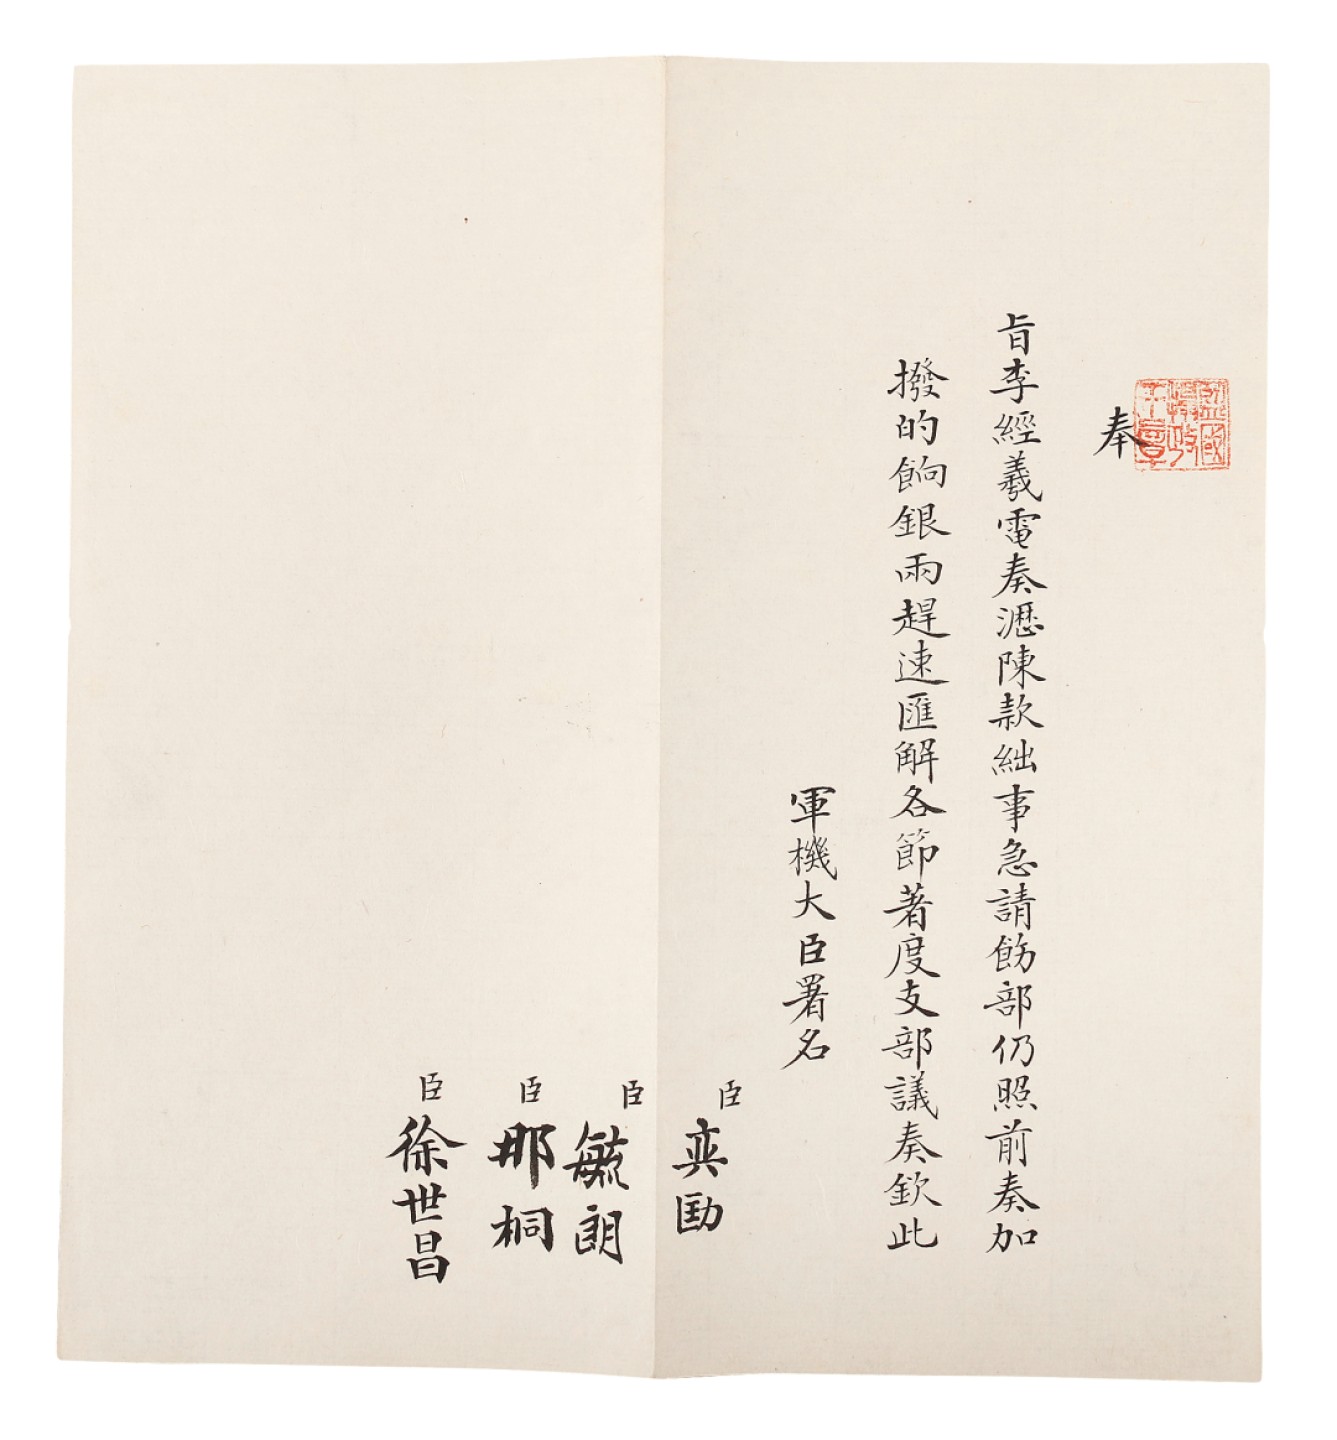 監國攝政王章
奉
旨李經羲電奏瀝陳款絀事急請飭部仍照前奏加
撥的餉銀兩趕速匯解各節著度支部議奏欽此
軍機大臣署名
臣奕劻
臣毓朗
臣那桐
臣徐世昌